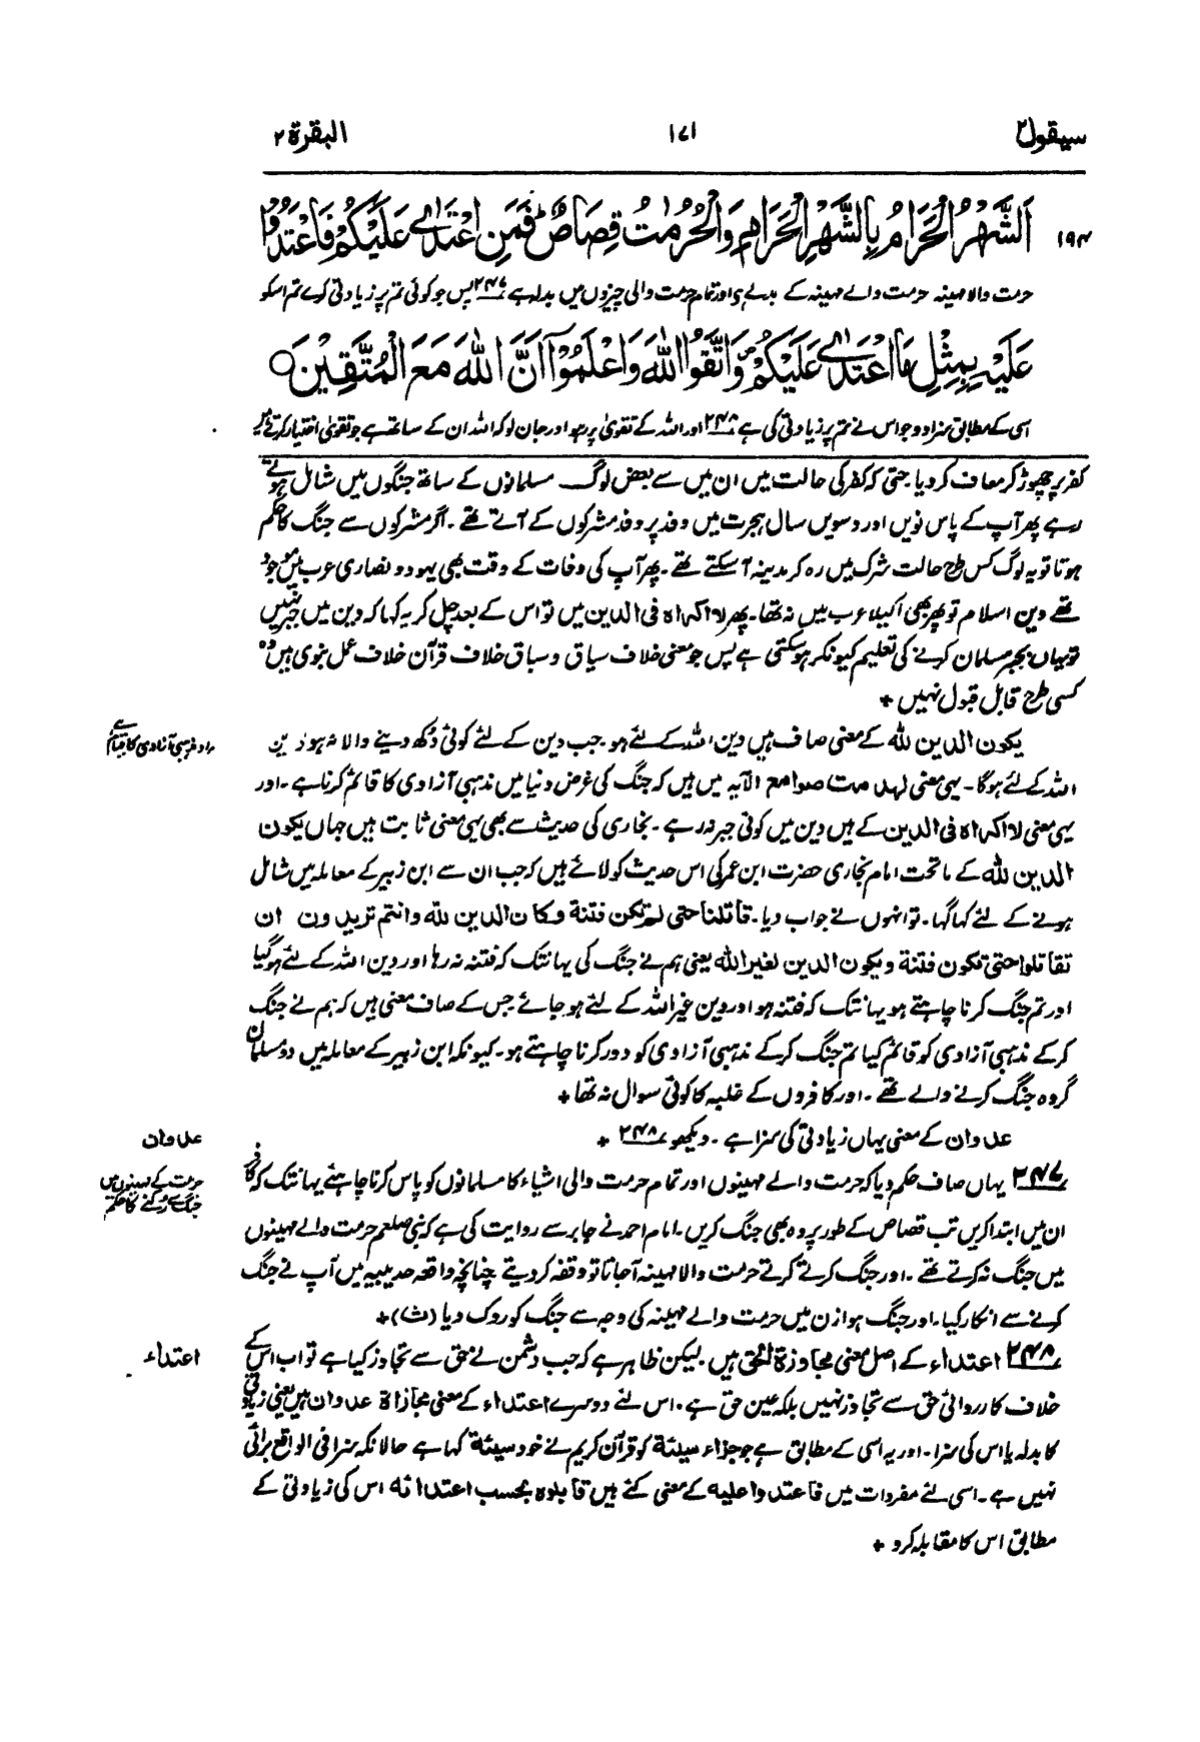 سیقول ۲
۱۷۱
البقرة ۲
۱۹۴ اَلشَّهْرُ الْحَرَامُ بِالشَّهْرِ الْحَرَامِ وَالْحُرُمٰتُ قِصَاصٌ ؕ فَمَنِ اعْتَدٰى عَلَيْكُمْ فَاعْتَدُوْا
حرمت والا مہینہ حرمت والے مہینہ کے بدلے ہی اور تمام حرمت والی چیزوں میں بدلہ ہے ۲۴۷ پس جو کوئی تم پر زیادتی کرے تم اسکو
عَلَيْهِ بِمِثْلِ مَا اعْتَدٰى عَلَيْكُمْ ۪ وَاتَّقُوا اللهَ وَاعْلَمُوْۤا اَنَّ اللهَ مَعَ الْمُتَّقِيْنَ ○
اسی کے مطابق سزا دو جو اس نے تم پر زیادتی کی ہے ۲۴۸ اور اللہ کے تقویٰ پر رہو اور جان لو کہ اللہ ان کے ساتھ ہے جو تقویٰ اختیار کرتے ہیں
کفر پر چھوڑ کر معاف کر دیا۔ حتیٰ کہ کفر کی حالت میں ان میں سے بعض لوگ مسلمانوں کے ساتھ جنگوں میں شامل ہوتے
رہے پھر آپ کے پاس نویں اور دسویں سال ہجرت میں وفد پر وفد مشرکوں کے آتے تھے۔ اگر مشرکوں سے جنگ کا حکم
ہوتا تو یہ لوگ کس طرح حالت شرک میں رہ کر مدینہ آسکتے تھے۔ پھر آپ کی وفات کے وقت بھی یہود و نصاری عرب میں موجود
تھے دین اسلام تو پھر بھی اکیلا عرب میں نہ تھا۔ پھر لا اکراہ فی الدین میں تو اس کے بعد چل کر یہ کہا کہ دین میں جبر نہیں
تو یہاں بجبر مسلمان کرنے کی تعلیم کیونکر ہوسکتی ہے پس جو معنی خلاف سیاق و سباق خلاف قرآن خلاف عمل نبوی ہیں وہ
کسی طرح قابل قبول نہیں +
یکون الدین للہ کے معنی صاف ہیں دین اللہ کے لئے ہو۔ جب دین کے لئے کوئی دُکھ دینے والا نہ ہو تو دین
مراد مذہبی آزادی کا قیام ہے
اللہ کے لئے ہوگا۔ یہی معنی لہدمت صوامع الآیہ میں ہیں کہ جنگ کی غرض دنیا میں مذہبی آزادی کا قائم کرنا ہے۔ اور
یہی معنی لا اکراہ فی الدین کے ہیں دین میں کوئی جبر نہ رہے۔ بخاری کی حدیث سے بھی یہی معنی ثابت ہیں جہاں یکون
الدین للہ کے ماتحت امام بخاری حضرت ابن عمر کی اس حدیث کو لائے ہیں کہ جب ان سے ابن زبیر کے معاملہ میں شامل
ہونے کے لئے کہا گیا۔ تو انہوں نے جواب دیا۔ قاتلنا حتی لم تکن فتنة وکان الدین للہ وانتم تریدون ان
تقاتلوا حتی تکون فتنة ویکون الدین لغیر اللہ یعنی ہم نے جنگ کی یہانتک کہ فتنہ نہ رہا اور دین اللہ کے لئے ہوگیا
اور تم جنگ کرنا چاہتے ہو یہانتک کہ فتنہ ہو اور دین غیر اللہ کے لئے ہو جائے جس کے صاف معنی ہیں کہ ہم نے جنگ
کرکے مذہبی آزادی کو قائم کیا تم جنگ کرکے مذہبی آزادی کو دور کرنا چاہتے ہو۔ کیونکہ ابن زبیر کے معاملہ میں دو مسلمان
گروہ جنگ کرنے والے تھے۔ اور کافروں کے غلبہ کا کوئی سوال نہ تھا +
عدوان کے معنی یہاں زیادتی کی سزا ہے۔ دیکھو ۲۴۸ +
عدوان
۲۴۷ یہاں صاف حکم دیا کہ حرمت والے مہینوں اور تمام حرمت والی اشیاء کا مسلمانوں کو پاس کرنا چاہئے یہانتک کہ کافر
حرمت کے مہینوں میں جنگ سے رکنے کا حکم
ان میں ابتدا کریں تب قصاص کے طور پر وہ بھی جنگ کریں۔ امام احمد نے جابر سے روایت کی ہے کہ نبی صلعم حرمت والے مہینوں
میں جنگ نہ کرتے تھے۔ اور جنگ کرتے کرتے حرمت والا مہینہ آجاتا تو وقفہ کر دیتے چنانچہ واقعہ حدیبیہ میں آپ نے جنگ
کرنے سے انکار کیا۔ اور جنگ ہوازن میں حرمت والے مہینہ کی وجہ سے جنگ کو روک دیا (ث) +
۲۴۸ اعتداء کے اصل معنی مجاوزة الحق ہیں لیکن ظاہر ہے کہ جب دشمن نے حق سے تجاوز کیا ہے تو اب اس کے
اعتداء
خلاف کارروائی حق سے تجاوز نہیں بلکہ عین حق ہے۔ اس لئے دوسرے اعتداء کے معنی مجازاة عدوان ہیں یعنی زیادتی
کا بدلہ یا اس کی سزا۔ اور یہ اسی کے مطابق ہے جو جزاء سیئة کو قرآن کریم نے خود سیئة کہا ہے حالانکہ سزا فی الواقع برائی
نہیں ہے۔ اسی لئے مفردات میں فاعتدوا علیه کے معنی کئے ہیں قابلوہ بحسب اعتدائه اس کی زیادتی کے
مطابق اس کا مقابلہ کرو +